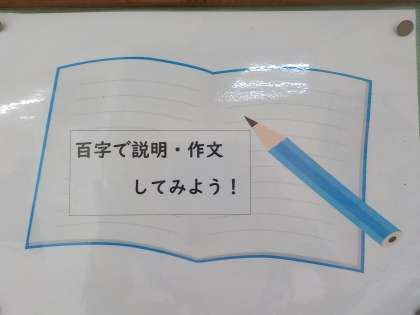 百字で説明・作文
してみよう！